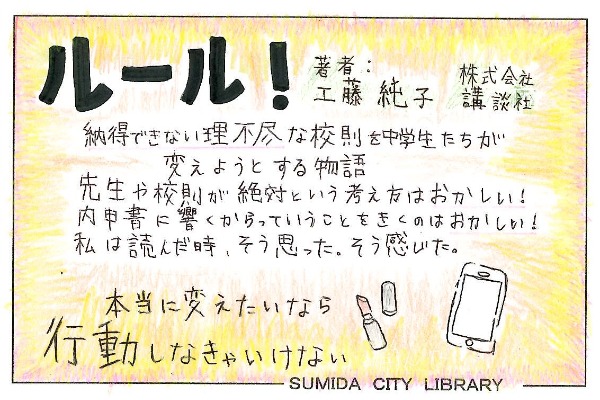 ルール！
著者：
工藤 純子
株式会社
講談社
納得できない理不尽な校則を中学生たちが
変えようとする物語
先生や校則が絶対という考え方はおかしい！
内申書に響くからっていうことをきくのはおかしい！
私は読んだ時、そう思った。そう感じた。
本当に変えたいなら
行動しなきゃいけない
SUMIDA CITY LIBRARY